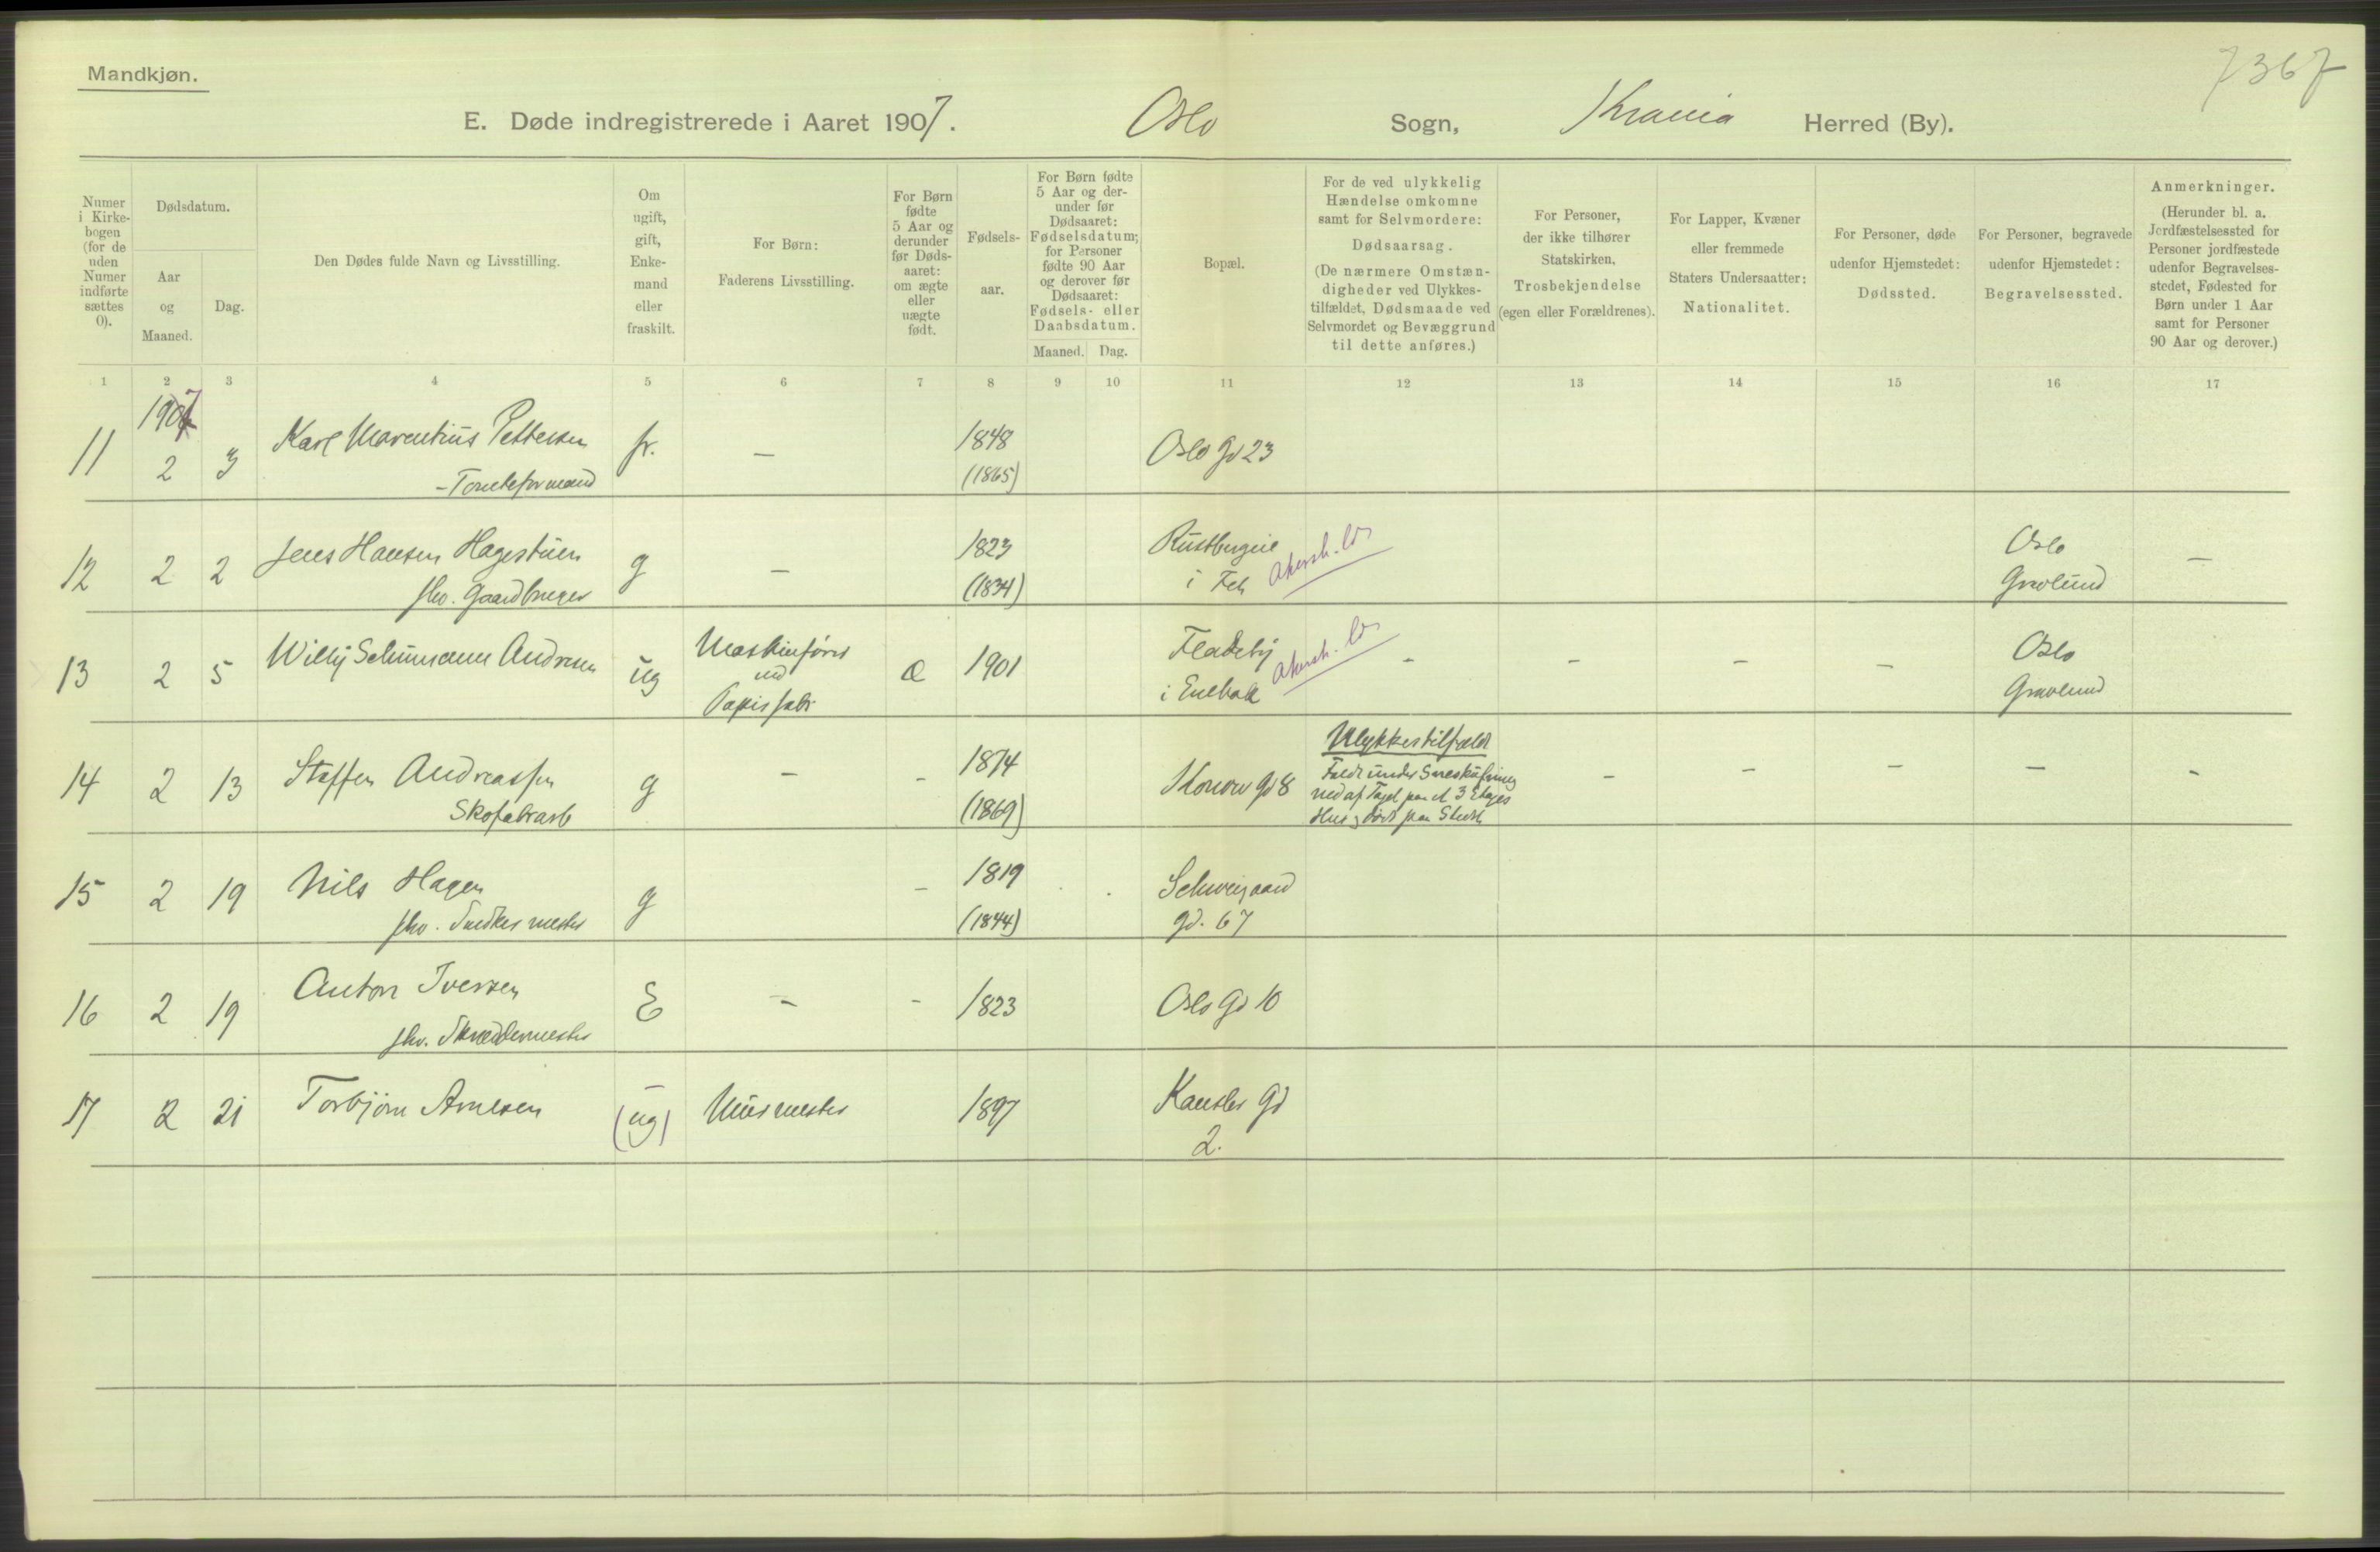 Mandkjøn.
7367
E. Døde indregistrerede i Aaret 1907. Oslo Sogn, Krania Herred (By).
Numer i Kirkebogen (for de uden Numer indførte sættes 0).
Dødsdatum.
Aar og Maaned.
Dag.
Den Dødes fulde Navn og Livsstilling.
Om ugift, gift, Enkemand eller fraskilt.
For Børn: Faderens Livsstilling.
For Børn fødte 5 Aar og derunder før Dødsaaret: om ægte eller uægte født.
Fødselsaar.
For Børn fødte 5 Aar og derunder før Dødsaaret: Fødselsdatum; for Personer fødte 90 Aar og derover før Dødsaaret: Fødsels- eller Daabsdatum.
Maaned. Dag.
Bopæl.
For de ved ulykkelig Hændelse omkomne samt for Selvmordere: Dødsaarsag. (De nærmere Omstændigheder ved Ulykkestilfældet, Dødsmaade ved Selvmordet og Bevæggrund til dette anføres.)
For Personer, der ikke tilhører Statskirken, Trosbekjendelse (egen eller Forældrenes).
For Lapper, Kvæner eller fremmede Staters Undersaatter: Nationalitet.
For Personer, døde udenfor Hjemstedet: Dødssted.
For Personer, begravede udenfor Hjemstedet: Begravelsessted.
Anmerkninger. (Herunder bl. a. Jordfæstelsessted for Personer jordfæstede udenfor Begravelsesstedet, Fødested for Børn under 1 Aar samt for Personer 90 Aar og derover.)
1 2 3 4 5 6 7 8 9 10 11 12 13 14 15 16 17
1907
11 2 3 Karl Marentius Pettersen fr. — 1848 Oslo Gd 23
- Tomteformand (1865)
12 2 2 Jens Hansen Hagestuen g — 1823 i Fet Akersh. Oslo —
fhv. Gaardbruger (1834) Gravlund
13 2 5 Willy Schumann Andresen ug Maskinfører 1901 Fladeby Akersh. - - - - Oslo
ved Papirfabr i Enebak Gravlund
14 2 13 Steffen Andreassen g - - 1874 Konow Gd 8 Ulykkestilfælde - - - - -
Skofabrarb (1869) Faldt under Sneskufning
ned af Taget paa et 3 Etages
Hus, død paa Stedet
15 2 19 Nils Hagen g - 1819 Schweigaard
fhv. Snedkermester (1844) gd. 67
16 2 19 Anton Iversen E - - 1823 Oslo Gd 10
fhv. Skræddermester
17 2 21 Torbjørn Arnesen (ug) Murmester 1897 Kantsler Gd
2.